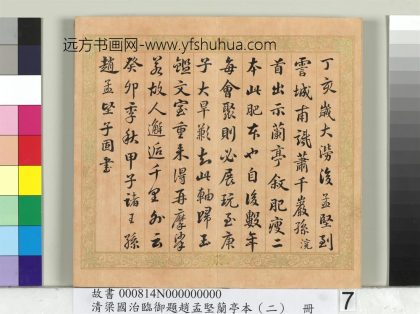 远方书画网-www.yfshuhua.com
丁亥歲大澇後孟堅到
霅城甫識蕭千巖孫浣
首出示蘭亭敘肥瘦二
本此肥本也自後數年
每會聚則必展玩至庚
子大旱歉去此軸歸玉
鑑文室重来得再摩挲
若故人邂逅千里外云
癸卯季秋甲子諸王孫
趙孟堅子固書
故書 000814N000000000
清梁國治臨御題趙孟堅蘭亭本（二） 冊
7